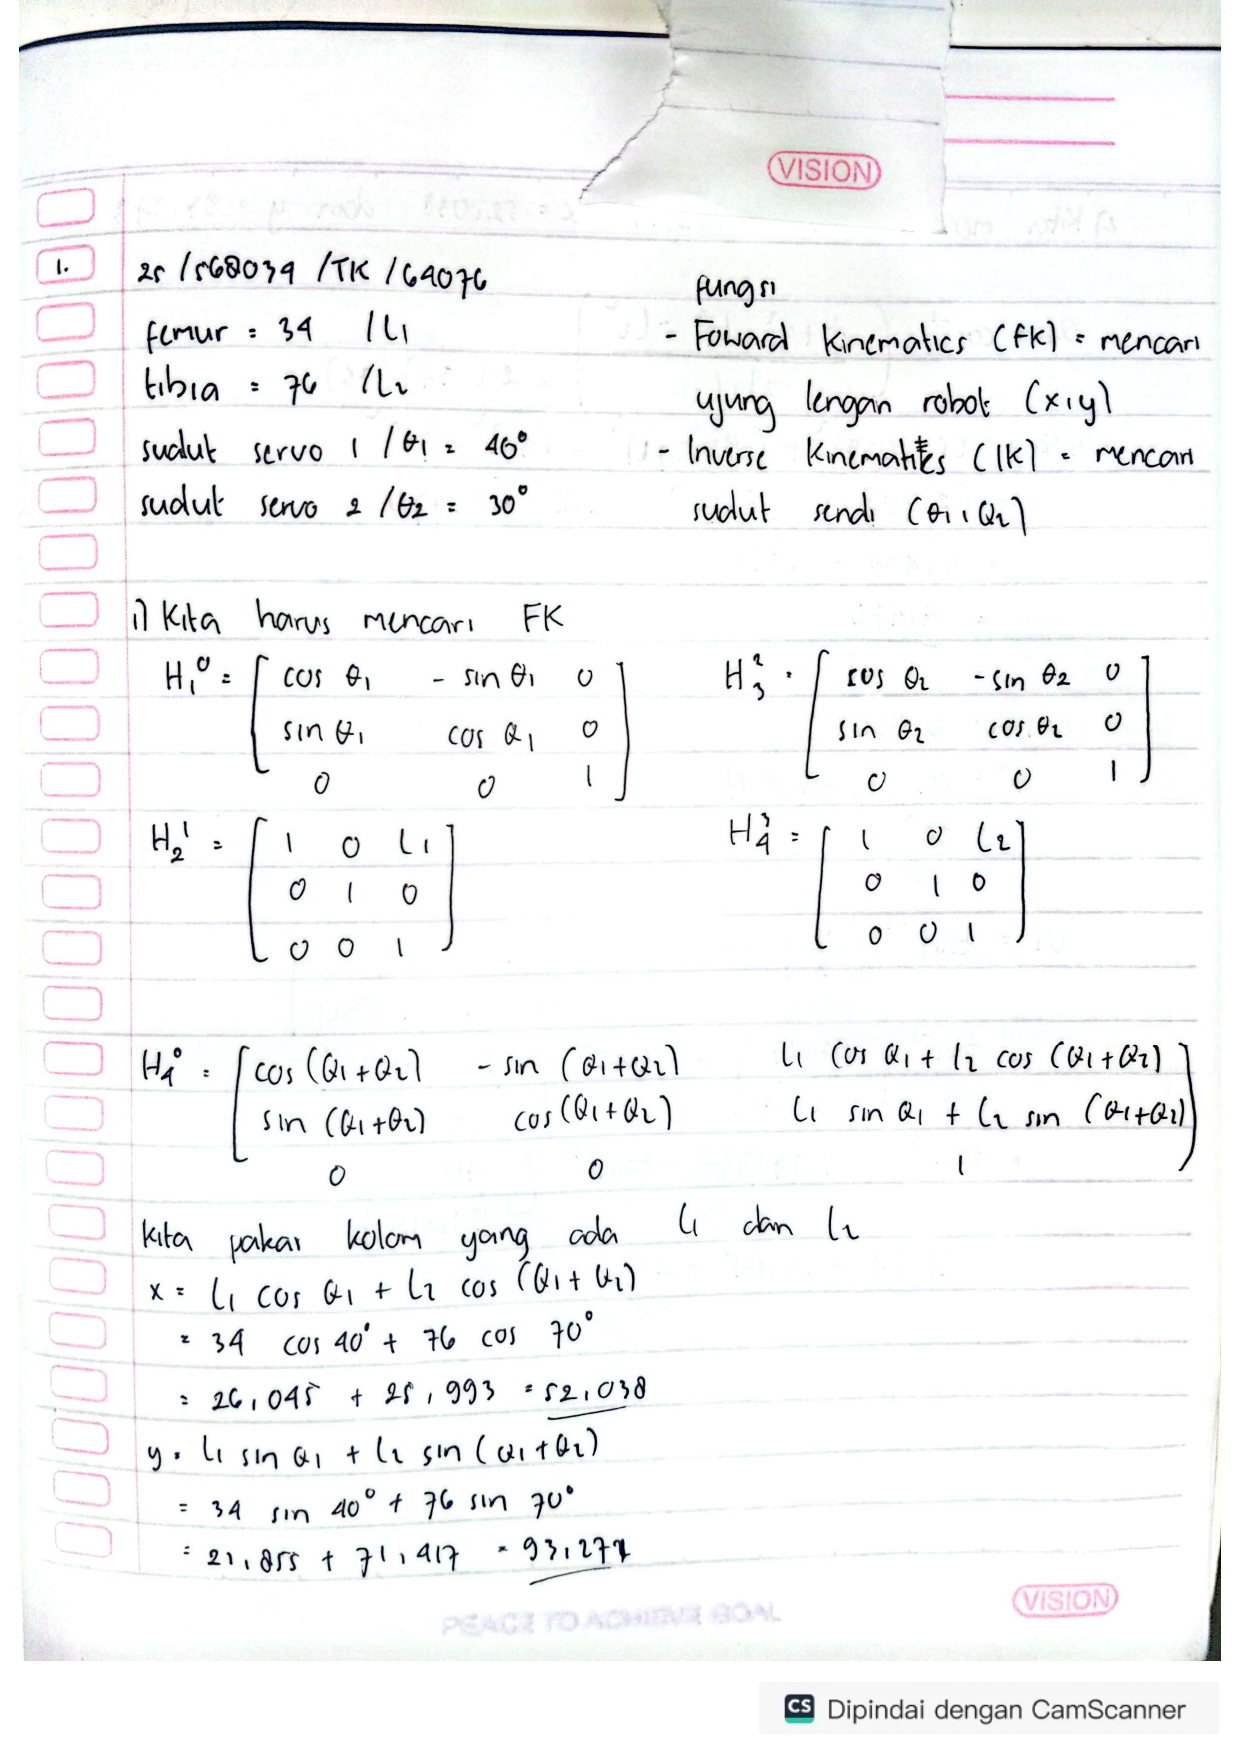 VISION
1.
25/568034/TK/64076
femur = 34 /L1
tibia = 76 /L2
sudut servo 1 /θ1 = 40°
sudut servo 2 /θ2 = 30°
fungsi
- Foward Kinematics (FK) = mencari
ujung lengan robot (x,y)
- Inverse Kinematics (IK) = mencari
sudut sendi (θ1, θ2)
i) Kita harus mencari FK
H₁⁰ = [ cos θ1 - sin θ1 0
sin θ1 cos θ1 0
0 0 1 ]
H₃² = [ cos θ2 - sin θ2 0
sin θ2 cos θ2 0
0 0 1 ]
H₂¹ = [ 1 0 L1
0 1 0
0 0 1 ]
H₄³ = [ 1 0 L2
0 1 0
0 0 1 ]
H₄⁰ = [ cos (θ1+θ2) - sin (θ1+θ2) L1 cos θ1 + L2 cos (θ1+θ2)
sin (θ1+θ2) cos (θ1+θ2) L1 sin θ1 + L2 sin (θ1+θ2)
0 0 1 ]
Kita pakai kolom yang ada L1 dan L2
x = L1 cos θ1 + L2 cos (θ1+θ2)
= 34 cos 40° + 76 cos 70°
= 26,045 + 25,993 = 52,038
y = L1 sin θ1 + L2 sin (θ1+θ2)
= 34 sin 40° + 76 sin 70°
= 21,855 + 71,417 = 93,272
VISION
PEACE TO ACHIEVE GOAL
CS Dipindai dengan CamScanner